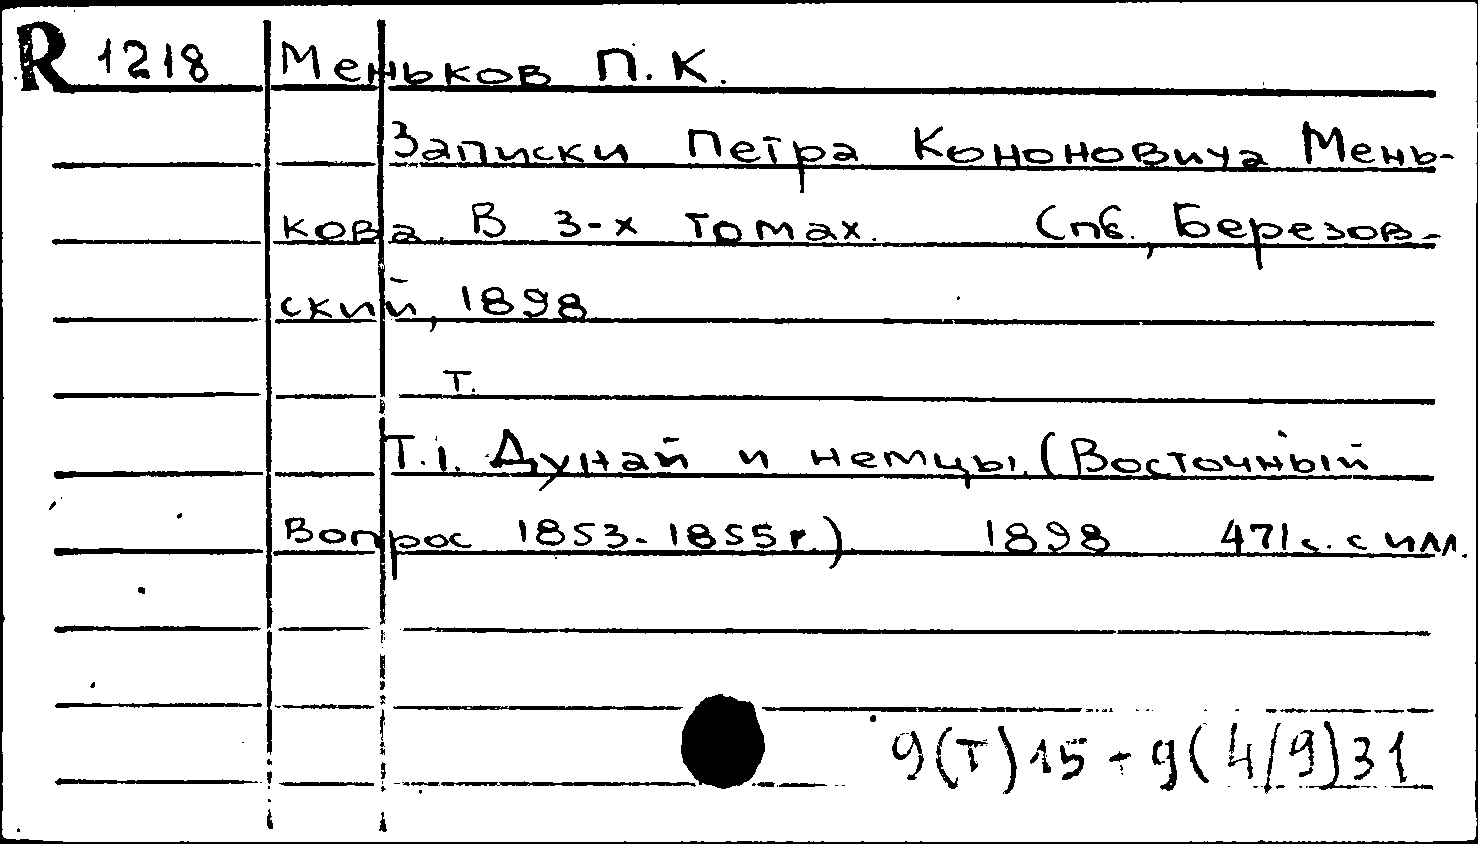 R 1218 Меньков П. К.
Записки Петра Кононовича Мень-
кова. В 3-х томах. Спб., Березов-
ский, 1898
т.
Т.1. Дунай и немцы. (Восточный
Вопрос 1853-1855 г.) 1898 471 с. с илл.
9(Т)15 + 9(4/9)31